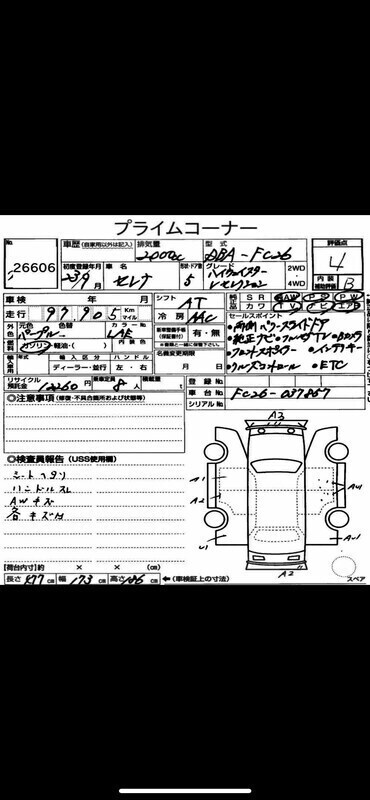 プライムコーナー
No.
26606
車歴 (自家用以外は記入) 排気量 2000cc 型式 DBA-FC26
初度登録年月 23.9 車名 セレナ 形状・ドア数 5 グレード ハイウェイスター Vセレクション 2WD・4WD
評価点 4
内装補助評価 B
車検 年 月
走行 97,905 Km マイル
シフト AT
冷房 AAC
SR AW PS PW
カワ TV ナビ エアB
外色 元色 パープル 色替 カラーNo. LAE
燃料 ガソリン・軽油・( )
車整備手帳(保証書付) 有・無
※書類と一緒に保管して下さい。
輸入車 輸入区分 ディーラー・並行 ハンドル 左・右
名義変更期限 月 日
リサイクル預託金 12260円 乗車定員 8人 積載量 t
セールスポイント
・両側パワースライドドア
・純正ナビ・フルセグTV・Bカメラ
・フロントスポイラー ・インテリキー
・クルーズコントロール ・ETC
登録No.
車台No. FC26-027857
シリアルNo.
◎注意事項 (修復・不具合箇所および状態等)
◎検査員報告 (USS使用欄)
シートヘタリ
ハンドルスレ
AWキズ
各キズ凹
A3
A1
A2
U1
A2
スペア
【荷台内寸】約 × × (cm)
長さ 477cm 幅 173cm 高さ 186cm ←(車検証上の寸法)